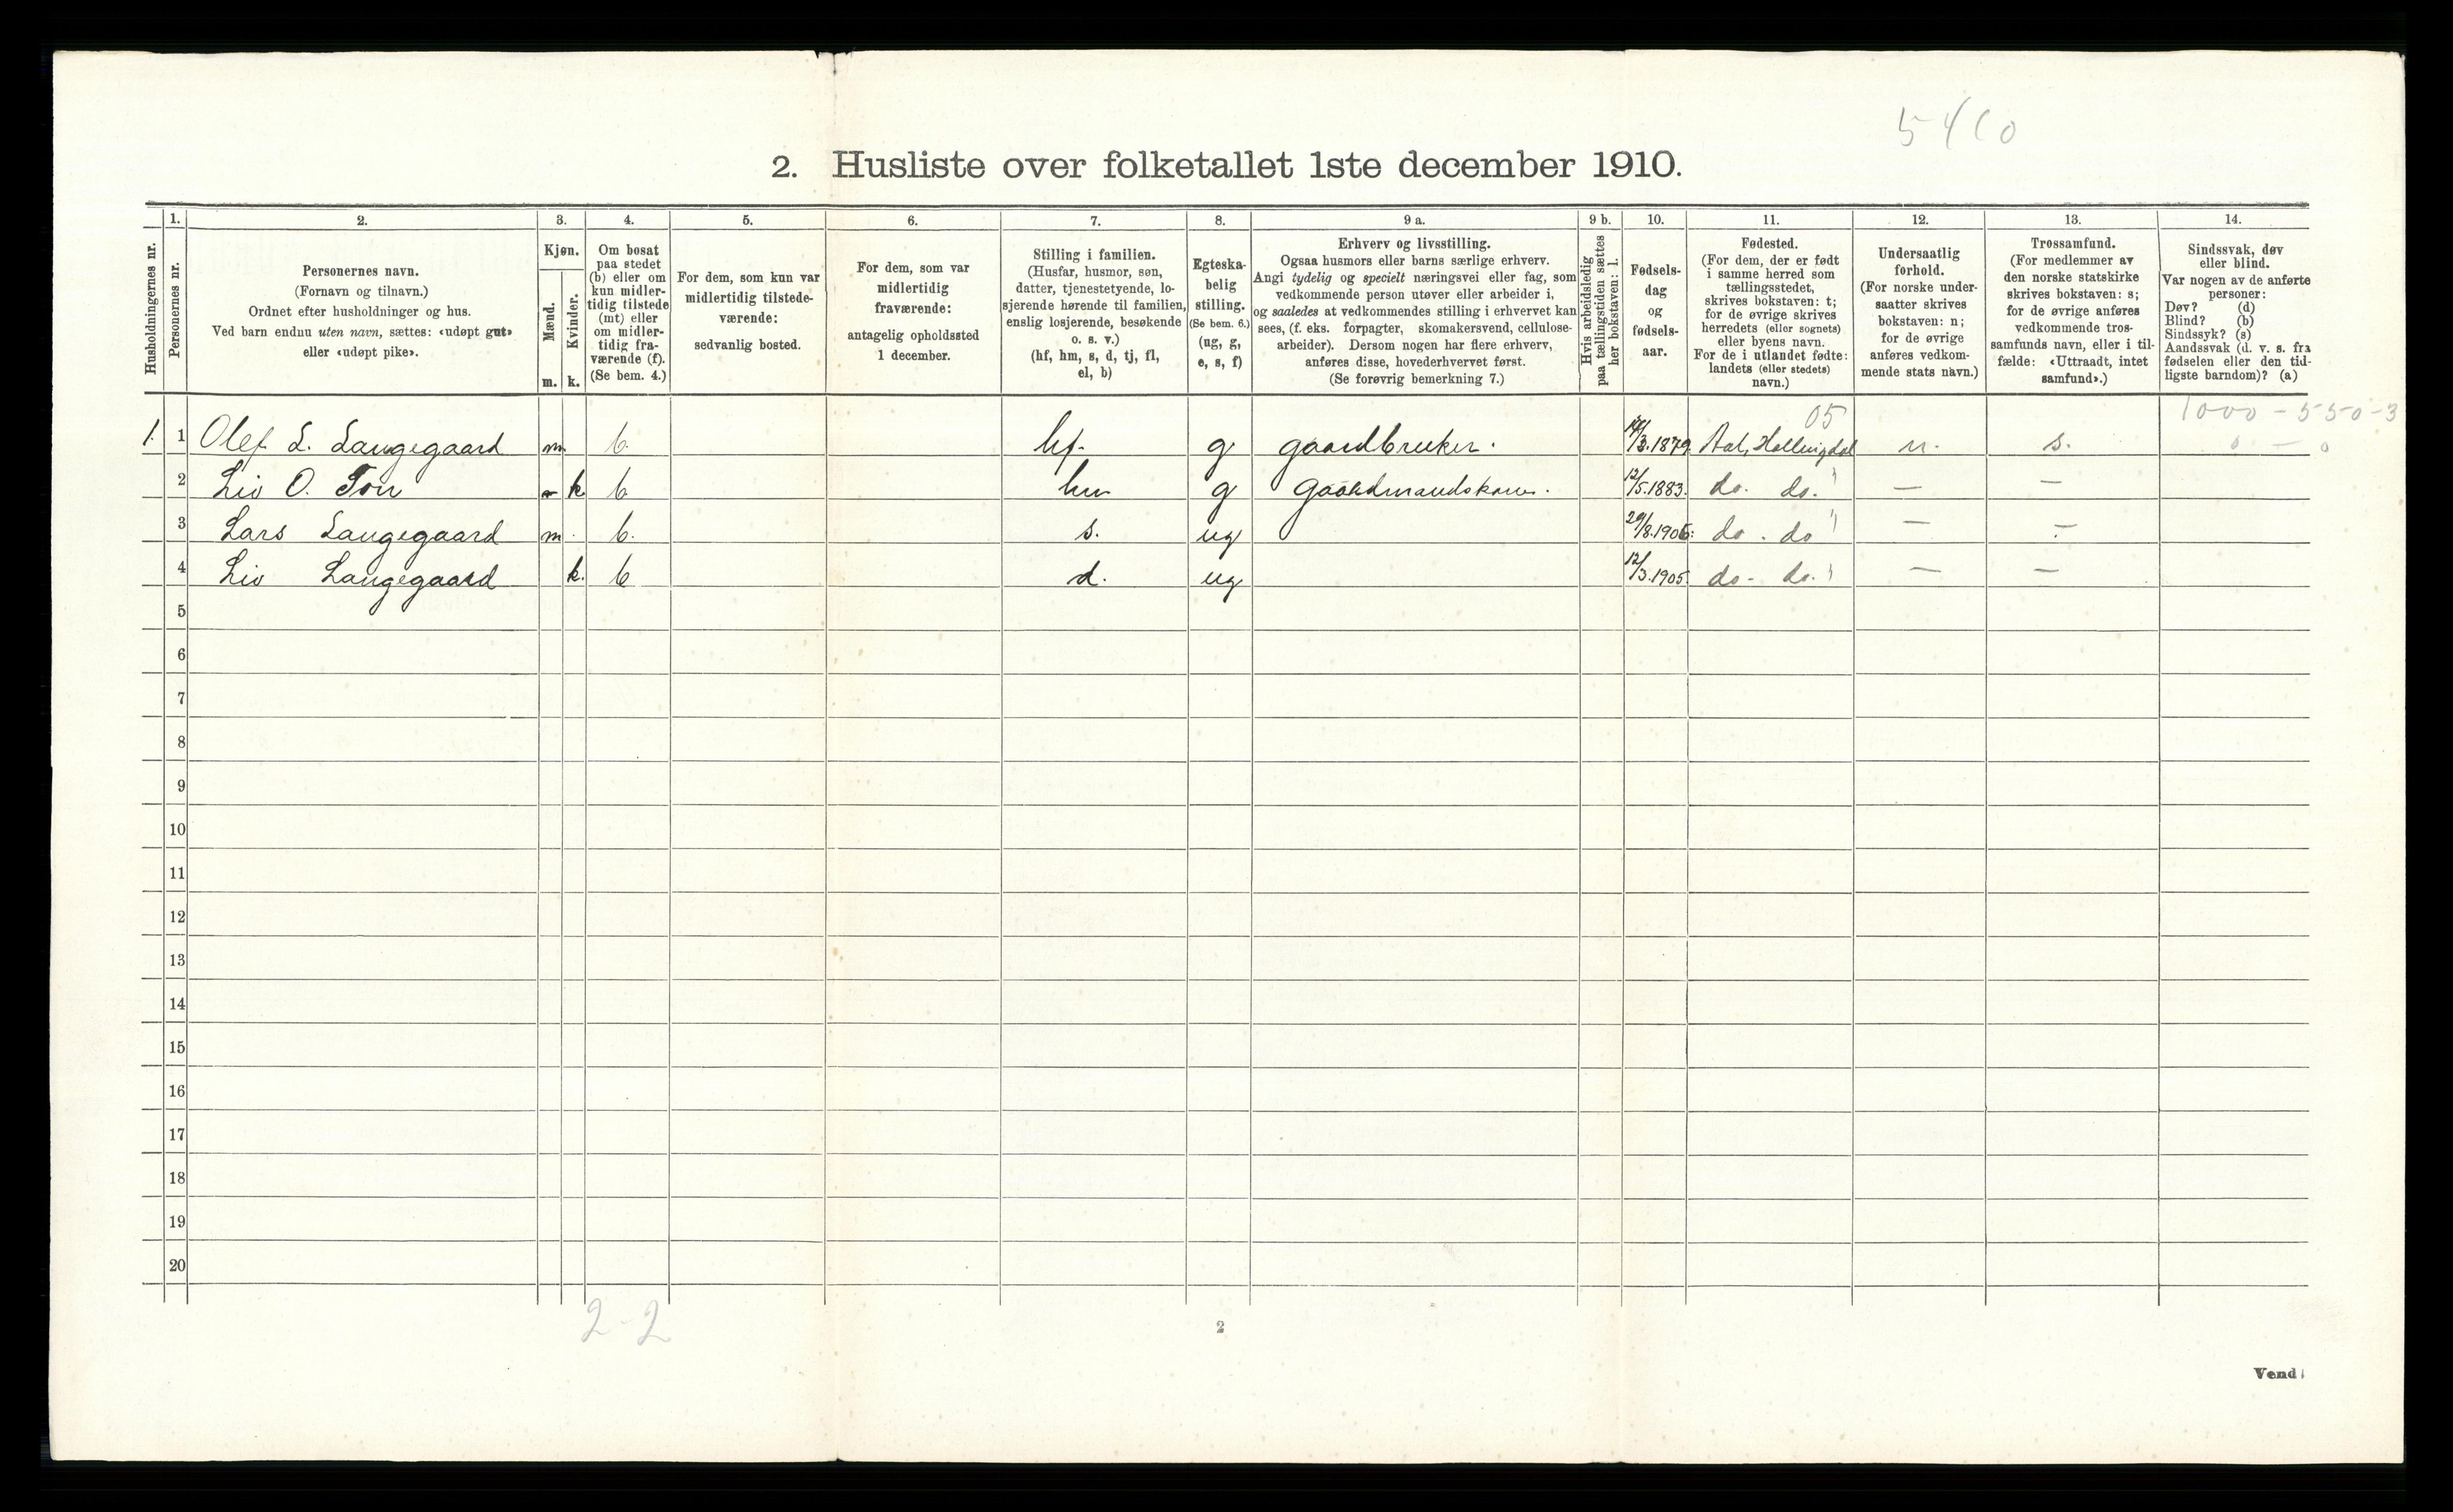 5410
2. Husliste over folketallet 1ste december 1910.
Husholdningernes nr.
1.
Personernes nr.
2.
Personernes navn.
(Fornavn og tilnavn.)
Ordnet efter husholdninger og hus.
Ved barn endnu uten navn, sættes: «udøpt gut»
eller «udøpt pike».
3.
Kjøn.
Mænd.
Kvinder.
m. k.
4.
Om bosat
paa stedet
(b) eller om
kun midler-
tidig tilstede
(mt) eller
om midler-
tidig fra-
værende (f).
(Se bem. 4.)
5.
For dem, som kun var
midlertidig tilstede-
værende:
sedvanlig bosted.
6.
For dem, som var
midlertidig
fraværende:
antagelig opholdssted
1 december.
7.
Stilling i familien.
(Husfar, husmor, søn,
datter, tjenestetyende, lo-
sjerende hørende til familien,
enslig losjerende, besøkende
o. s. v.)
(hf, hm, s, d, tj, fl,
el, b)
8.
Egteska-
belig
stilling.
(Se bem. 6.)
(ug, g,
e, s, f)
9 a.
Erhverv og livsstilling.
Ogsaa husmors eller barns særlige erhverv.
Angi tydelig og specielt næringsvei eller fag, som
vedkommende person utøver eller arbeider i,
og saaledes at vedkommendes stilling i erhvervet kan
sees, (f. eks. forpagter, skomakersvend, cellulose-
arbeider). Dersom nogen har flere erhverv,
anføres disse, hovederhvervet først.
(Se forøvrig bemerkning 7.)
9 b.
Hvis arbeidsledig
paa tællingstiden sættes
her bokstaven: l.
10.
Fødsels-
dag
og
fødsels-
aar.
11.
Fødested.
(For dem, der er født
i samme herred som
tællingsstedet,
skrives bokstaven: t;
for de øvrige skrives
herredets (eller sognets)
eller byens navn.
For de i utlandet fødte:
landets (eller stedets)
navn.)
12.
Undersaatlig
forhold.
(For norske under-
saatter skrives
bokstaven: n;
for de øvrige
anføres vedkom-
mende stats navn.)
13.
Trossamfund.
(For medlemmer av
den norske statskirke
skrives bokstaven: s;
for de øvrige anføres
vedkommende tros-
samfunds navn, eller i til-
fælde: «Uttraadt, intet
samfund».)
14.
Sindssvak, døv
eller blind.
Var nogen av de anførte
personer:
Døv? (d)
Blind? (b)
Sindssyk? (s)
Aandssvak (d. v. s. fra
fødselen eller den tid-
ligste barndom)? (a)
05 1000 - 550 - 3
1. 1 Olef L. Langegaard m. b. hf. g gaardbruker. /3.1879 Aal, Hallingdal n. s. 0 - 0
2 Liv O. Ton k b hm g gaardmandskone. 12/5.1883. do. do. " — —
3 Lars Langegaard m. b. s. ug 29/8.1906: do. do " — —
4 Liv Langegaard k. b d. ug 12/3.1905. do - do. " — —
5
6
7
8
9
10
11
12
13
14
15
16
17
18
19
20
2 - 2
2
Vend!